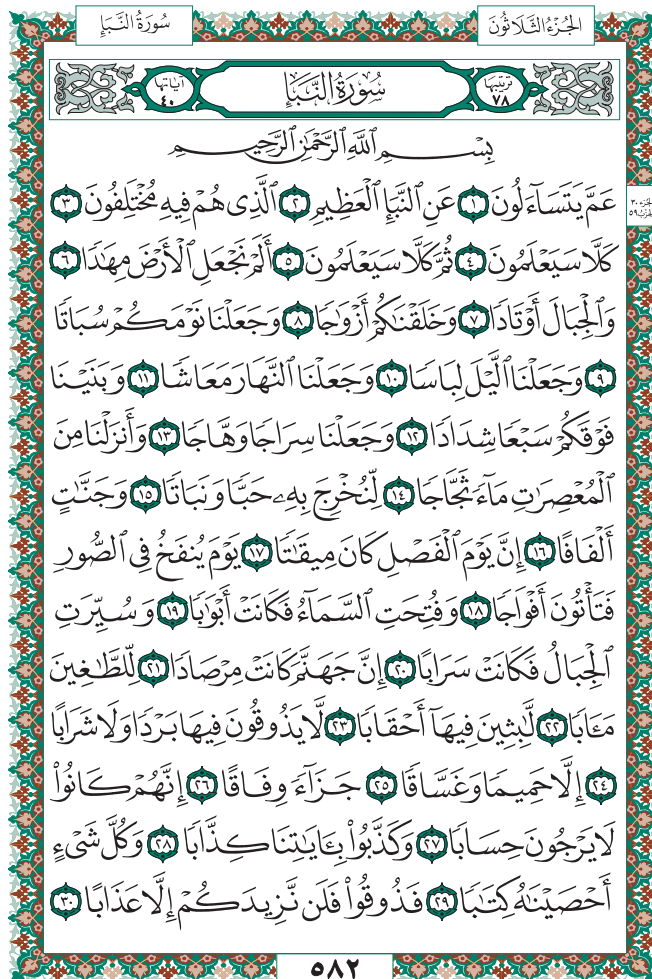 الجُزْءُ الثَّلَاثُونَ
سُورَةُ النَّبَإِ
تَرْتِيبُهَا ٧٨
سُورَةُ النَّبَإِ
آيَاتُهَا ٤٠
بِسْمِ ٱللَّهِ ٱلرَّحْمَٰنِ ٱلرَّحِيمِ
عَمَّ يَتَسَآءَلُونَ ١ عَنِ ٱلنَّبَإِ ٱلْعَظِيمِ ٢ ٱلَّذِى هُمْ فِيهِ مُخْتَلِفُونَ ٣
الجزء ٣٠
الحزب ٥٩
كَلَّا سَيَعْلَمُونَ ٤ ثُمَّ كَلَّا سَيَعْلَمُونَ ٥ أَلَمْ نَجْعَلِ ٱلْأَرْضَ مِهَٰدًا ٦
وَٱلْجِبَالَ أَوْتَادًا ٧ وَخَلَقْنَٰكُمْ أَزْوَٰجًا ٨ وَجَعَلْنَا نَوْمَكُمْ سُبَاتًا
٩ وَجَعَلْنَا ٱلَّيْلَ لِبَاسًا ١٠ وَجَعَلْنَا ٱلنَّهَارَ مَعَاشًا ١١ وَبَنَيْنَا
فَوْقَكُمْ سَبْعًا شِدَادًا ١٢ وَجَعَلْنَا سِرَاجًا وَهَّاجًا ١٣ وَأَنزَلْنَا مِنَ
ٱلْمُعْصِرَٰتِ مَآءً ثَجَّاجًا ١٤ لِّنُخْرِجَ بِهِۦ حَبًّا وَنَبَاتًا ١٥ وَجَنَّٰتٍ
أَلْفَافًا ١٦ إِنَّ يَوْمَ ٱلْفَصْلِ كَانَ مِيقَٰتًا ١٧ يَوْمَ يُنفَخُ فِى ٱلصُّورِ
فَتَأْتُونَ أَفْوَاجًا ١٨ وَفُتِحَتِ ٱلسَّمَآءُ فَكَانَتْ أَبْوَٰبًا ١٩ وَسُيِّرَتِ
ٱلْجِبَالُ فَكَانَتْ سَرَابًا ٢٠ إِنَّ جَهَنَّمَ كَانَتْ مِرْصَادًا ٢١ لِّلطَّٰغِينَ
مَـَٔابًا ٢٢ لَّٰبِثِينَ فِيهَآ أَحْقَابًا ٢٣ لَّا يَذُوقُونَ فِيهَا بَرْدًا وَلَا شَرَابًا
٢٤ إِلَّا حَمِيمًا وَغَسَّاقًا ٢٥ جَزَآءً وِفَاقًا ٢٦ إِنَّهُمْ كَانُوا۟
لَا يَرْجُونَ حِسَابًا ٢٧ وَكَذَّبُوا۟ بِـَٔايَٰتِنَا كِذَّابًا ٢٨ وَكُلَّ شَىْءٍ
أَحْصَيْنَٰهُ كِتَٰبًا ٢٩ فَذُوقُوا۟ فَلَن نَّزِيدَكُمْ إِلَّا عَذَابًا ٣٠
٥٨٢